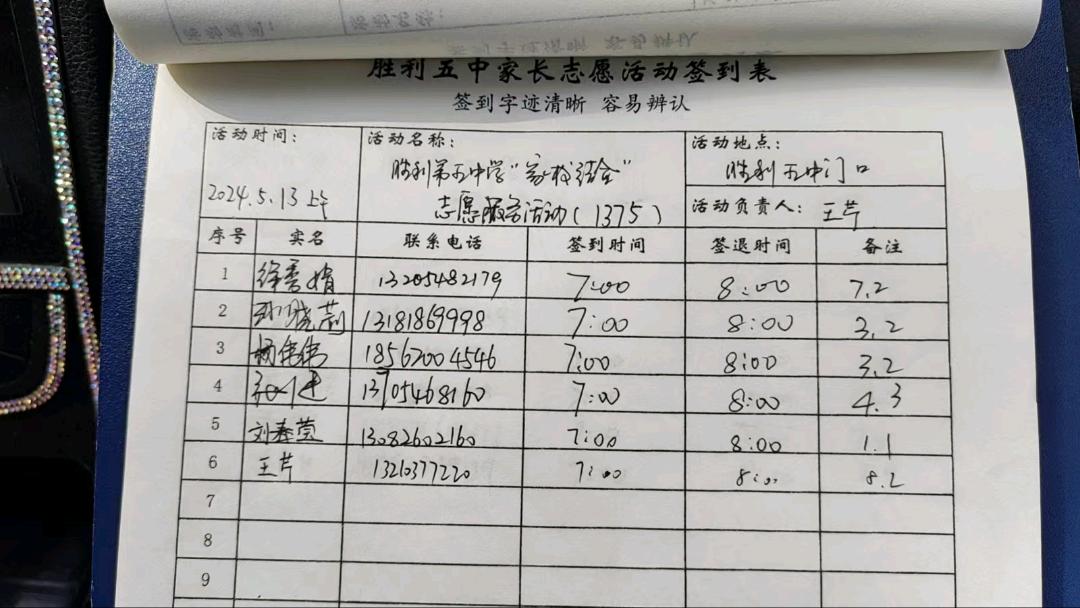 胜利五中家长志愿活动签到表
签到字迹清晰 容易辨认
活动时间: 活动名称: 活动地点:
胜利第五中学"家校结合" 胜利五中门口
2024.5.13上午 志愿服务活动(1375) 活动负责人: 王芹
序号 实名 联系电话 签到时间 签退时间 备注
1 徐香娟 13205482179 7:00 8:00 7.2
2 13181869998 7:00 8:00 3.2
3 杨伟伟 18562004546 7:00 8:00 3.2
4 13705468160 7:00 8:00 4.3
5 刘春莹 13082602160 7:00 8:00 1.1
6 王芹 13210377220 7:00 8:00 8.2
7
8
9